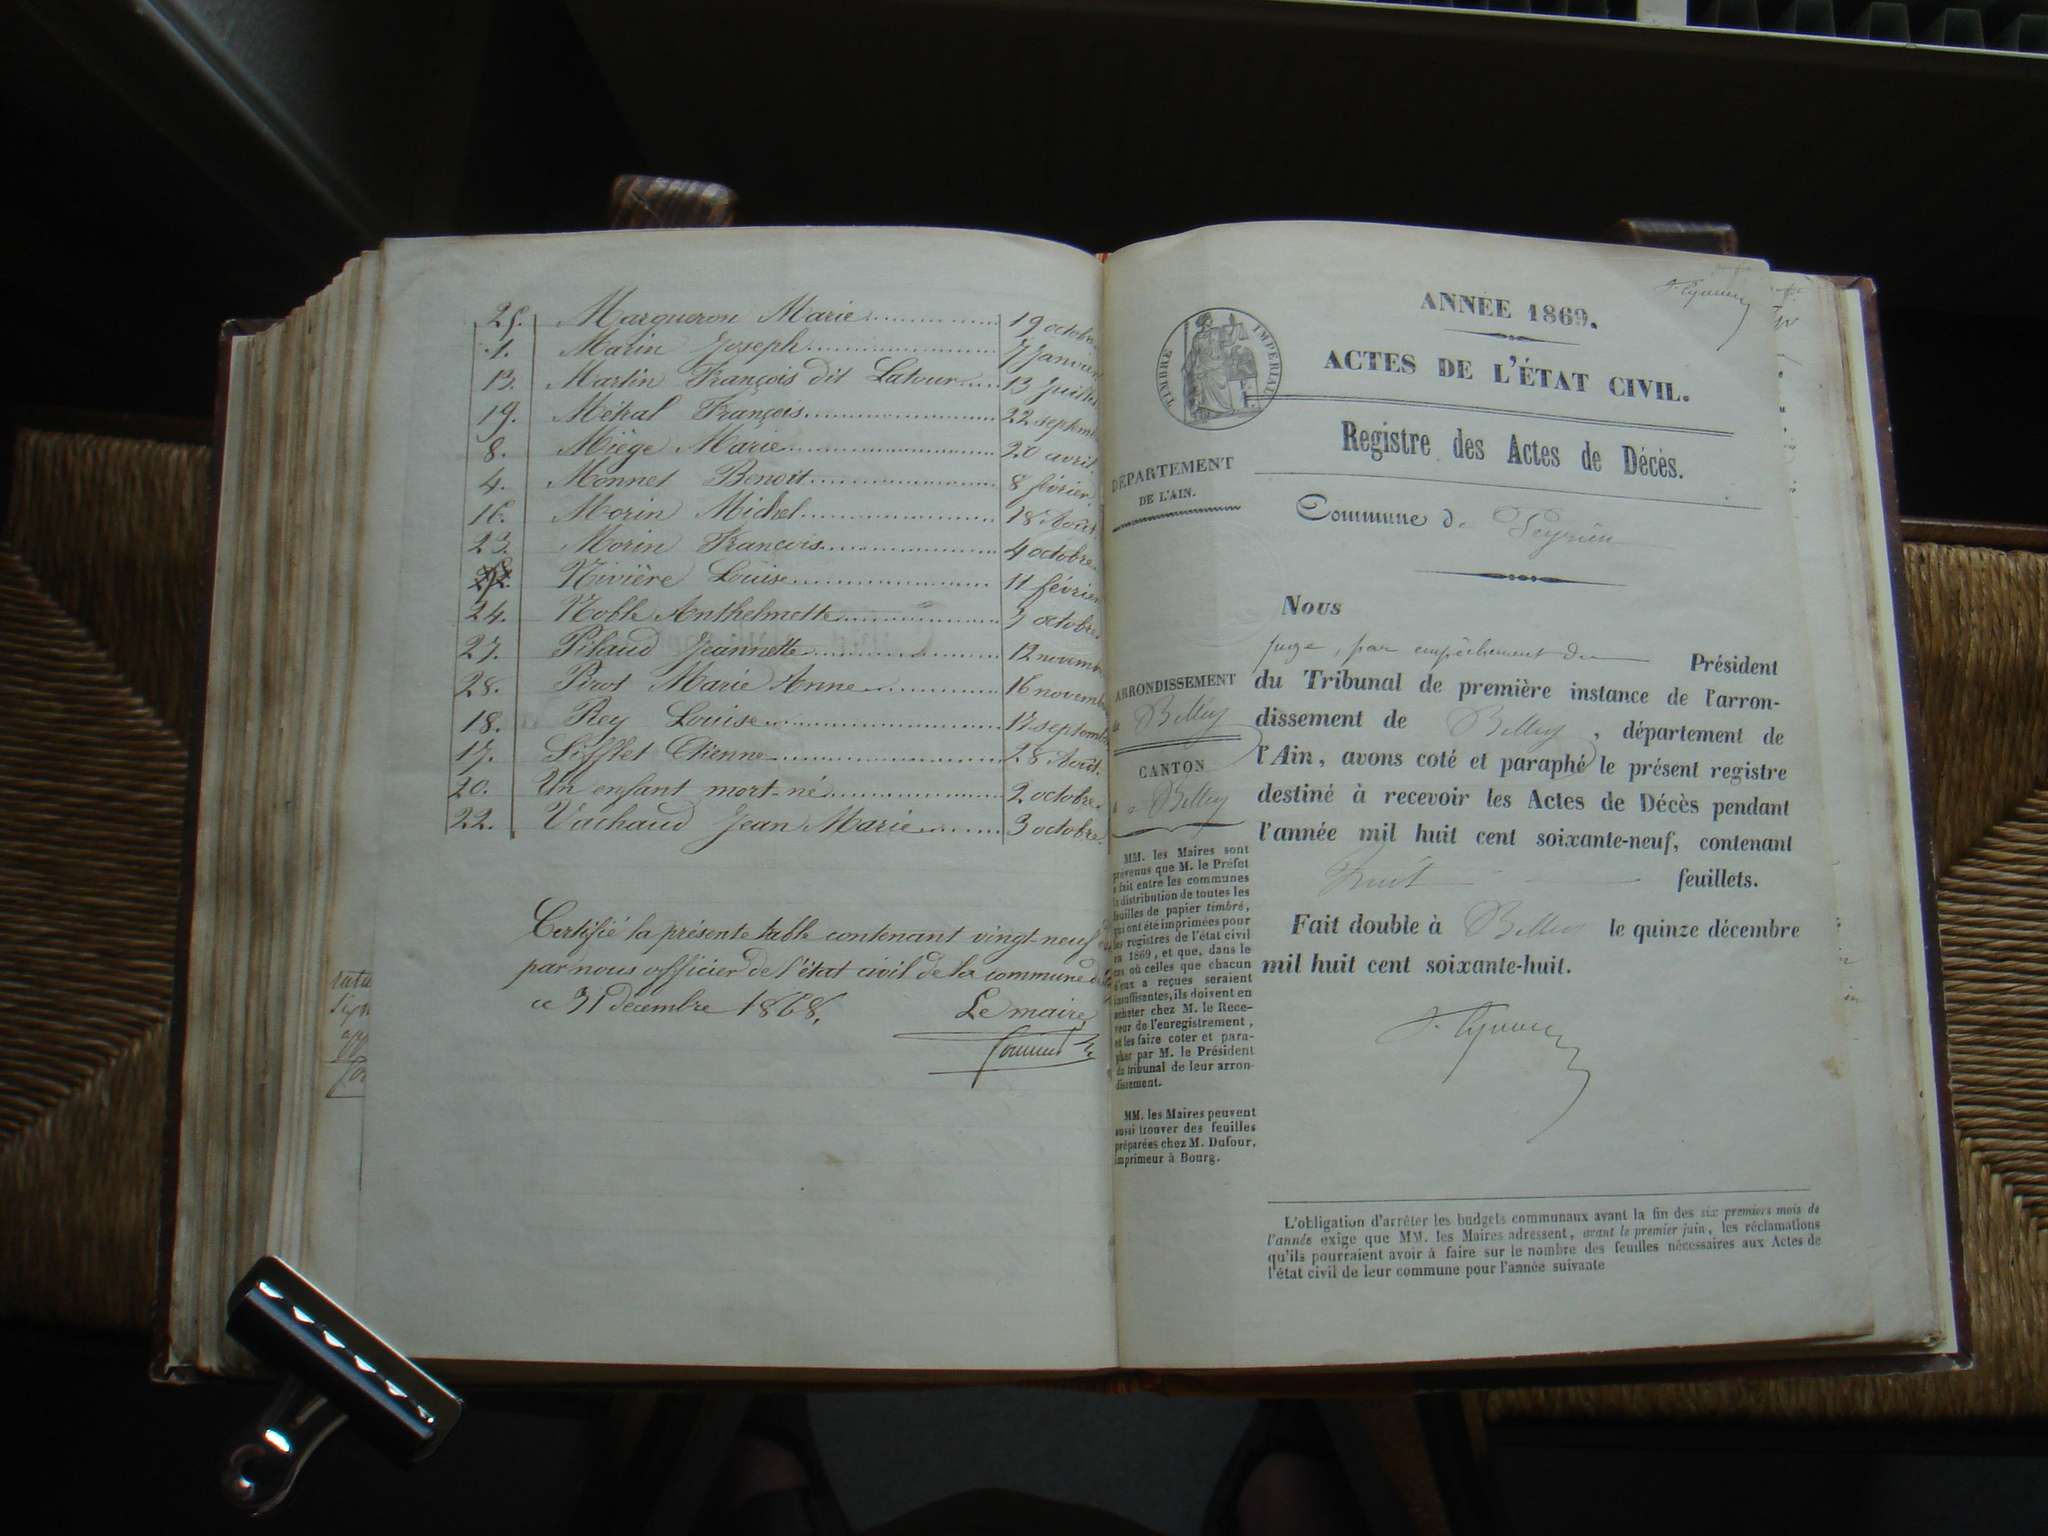 25. Margueron Marie 19 octobre
1. Marin Joseph 7 Janvier
13. Martin François dit Latour 13 Juillet
19. Métral François 22 septemb
8. Miège Marie 20 avril.
4. Monnet Benoit 8 février
16. Morin Michel 18 Août.
23. Morin François 4 octobre
Nivière Louise 11 février
24. Noble Anthelmette 3 octobre
27. Pilaud Jeannette 12 novemb
28. Pirot Marie Anne 16 novemb
18. Rey Louise 17 septemb
17. Sifflet Etienne 28 Août.
20. Un enfant mort-né 2 octobre.
22. Vachaud Jean Marie 3 octobre.
Certifié la présente table contenant vingt-neuf
par nous officier de l'état civil de la commune de
ce 31 décembre 1868.
Le maire
ANNÉE 1869.
TIMBRE IMPÉRIAL
ACTES DE L'ÉTAT CIVIL.
Registre des Actes de Décès.
DÉPARTEMENT
DE L'AIN.
Commune de Peyrieu
Nous
juge, par empêchement du Président
du Tribunal de première instance de l'arron-
dissement de Belley, département de
l'Ain, avons coté et paraphé le présent registre
destiné à recevoir les Actes de Décès pendant
l'année mil huit cent soixante-neuf, contenant
huit feuillets.
Fait double à Belley le quinze décembre
mil huit cent soixante-huit.
ARRONDISSEMENT
de Belley
CANTON
de Belley
MM. les Maires sont
prévenus que M. le Préfet
a fait entre les communes
la distribution de toutes les
feuilles de papier timbré,
qui ont été imprimées pour
les registres de l'état civil
en 1869, et que, dans le
cas où celles que chacun
d'eux a reçues seraient
insuffisantes, ils doivent en
acheter chez M. le Rece-
veur de l'enregistrement,
et les faire coter et para-
pher par M. le Président
du tribunal de leur arron-
dissement.
MM. les Maires peuvent
aussi trouver des feuilles
préparées chez M. Dufour,
imprimeur à Bourg.
L'obligation d'arrêter les budgets communaux avant la fin des six premiers mois de
l'année exige que MM. les Maires adressent, avant le premier juin, les réclamations
qu'ils pourraient avoir à faire sur le nombre des feuilles nécessaires aux Actes de
l'état civil de leur commune pour l'année suivante